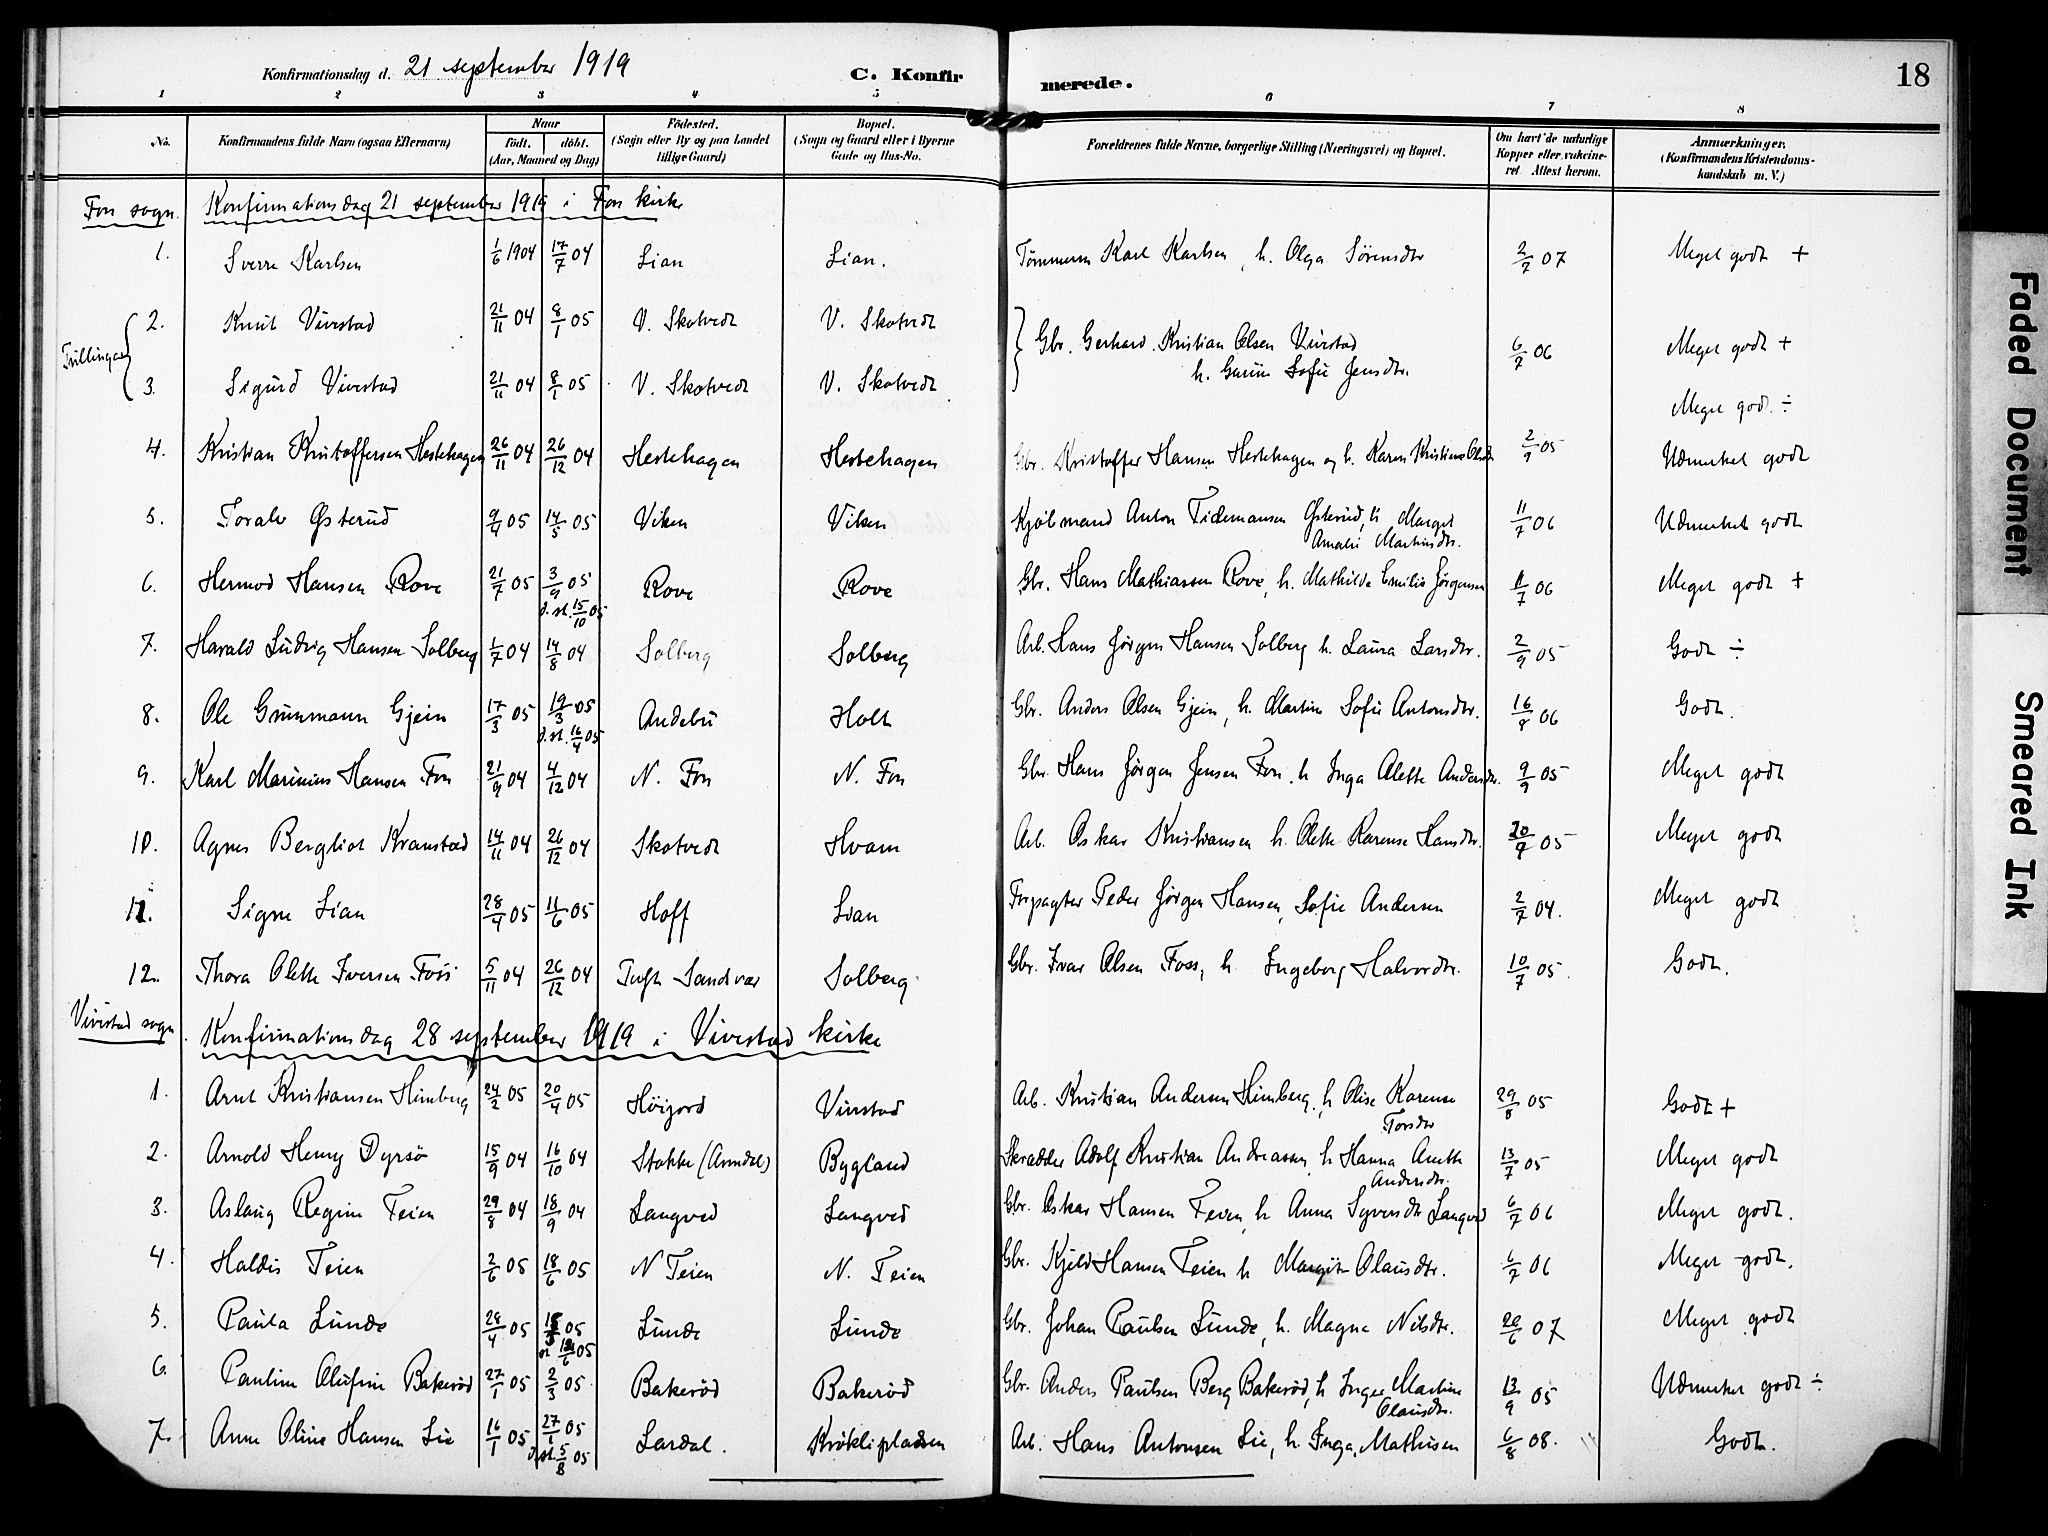 Konfirmationsdag d. 21 september 1919 C. Konfirmerede. 18
1 2 3 4 5 6 7 8
No. Konfirmandens fulde Navn (ogsaa Efternavn) Naar født. døbt. (Aar, Maaned og Dag) Fødested. (Sogn eller By og paa Landet tillige Gaard) Bopæl. (Sogn og Gaard eller i Byerne Gade og Hus-No. Forældrenes fulde Navne, borgerlige Stilling (Næringsvei) og Bopæl. Om havt de naturlige Kopper eller vakcineret. Attest herom. Anmærkninger. (Konfirmandens Kristendomskundskab m. V.)
Fon sogn. Konfirmationsdag 21 september 1919 i Fon kirke
1. Sverre Karlsen 1/6 1904 17/7 04 Lian Lian. Tømmerm Karl Karlsen, h. Olga Sørensdtr 2/7 07 Meget godt +
2. Knut Vivestad 21/11 04 8/1 05 V. Skotvedt V. Skotvedt Gbr. Gerhard Kristian Olsen Vivestad 6/7 06 Meget godt +
Trillinger
3. Sigurd Vivestad 21/11 04 8/1 05 V. Skotvedt V. Skotvedt h. Sofie Jensdtr. Meget godt ÷
4. Kristian Kristoffersen Hestehagen 26/11 04 26/12 04 Hestehagen Hestehagen Gbr. Kristoffer Hansen Hestehagen og h. Karen Kristine Olsdtr 05 Udmerket godt
5. Toralv Østerud 9/4 05 14/5 05 Viken Viken Kjøbmand Anton Tidemansen Østerud, h Marget Amalie Martinsdtr. 11/7 06 Udmerket godt
6. Hermod Hansen Rove 21/7 05 3/9 05 d. st. 15/10 05 Rove Rove Gbr. Hans Mathiassen Rove, h. Mathilde Emilie Jørgensen 11/7 06 Meget godt +
7. Harald Ludvig Hansen Solberg 1/7 04 14/8 04 Solberg Solberg Arb. Hans Jørgen Hansen Solberg h. Laura Larsdtr. 2/9 05 Godt ÷
8. Ole Gunmann Gjein 17/3 05 19/3 05 d. st. 16/4 05 Andebu Holt Gbr. Anders Olsen Gjein, h. Martine Sofie Antonsdtr. 16/8 06 Godt.
9. Karl Marinius Hansen Fon 21/9 04 4/12 04 N. Fon N. Fon Gbr. Hans Jørgen Jensen Fon. h Inga Olette Andersdtr. 9/9 05 Meget godt
10. Agnes Bergliot Kranstad 14/11 04 26/12 04 Skotvedt Hvam Arb. Oskar Kristiansen h. Olette Karense Hansdtr. 20/9 05 Meget godt
11. Signe Lian 28/4 05 11/6 05 Hoff Lian Forpagter Peder Jørgen Hansen, Sofie Andersen 2/7 04. Meget godt
12. Thora Olette Iversen Foss 5/11 04 26/12 04 Tuft Sandsvær Solberg Gbr. Ivar Olsen Foss, h. Ingeborg Halvordtr. 10/7 05. Godt.
Vivestad sogn. Konfirmationsdag 28 september 1919 i Vivestad kirke
1. Arnt Kristiansen Himberg 24/2 05 20/4 05 Høijord Vivestad Arb. Kristian Andersen Himberg, h Olise Karense Torsdtr 29/8 05 Godt +
2. Arnold Henry Dyrsø 15/9 04 16/10 04 Stokke (Arendal) Bygland Skrædder Adolf Kristian Andreassen, h Hanna Anette Andersdtr. 13/7 05 Meget godt
3. Aslaug Regine Teien 29/8 04 18/9 04 Langved Langved Gbr. Oskar Hansen Teien, h Anna Syversdtr Langved 6/7 06 Meget godt.
4. Haldis Teien 2/6 05 18/6 05 N Teien N. Teien Gbr. Kjeld Hansen Teien h Margit Olausdtr. 6/7 06 Meget godt.
5. Paula Lunde 28/4 05 05 05 Lunde Lunde Gbr. Johan Paulsen Lunde, h. Magna Nilsdtr. 20/6 07 Meget godt
6. Pauline Olufine Bakerød 27/1 05 2/3 05. Bakerød Bakerød Gbr. Anders Paulsen Berg Bakerød, h Inger Martine Olausdtr. 13/9 05 Udmerket godt ÷
7. Anne Oline Hansen Lie 16/1 05 27/1 05 d. st. 5/8 05 Lardal. Krøklipladsen Arb. Hans Antonsen Lie, h. Inga Mathisen 6/8 08. Godt.
Faded Document
Smeared Ink